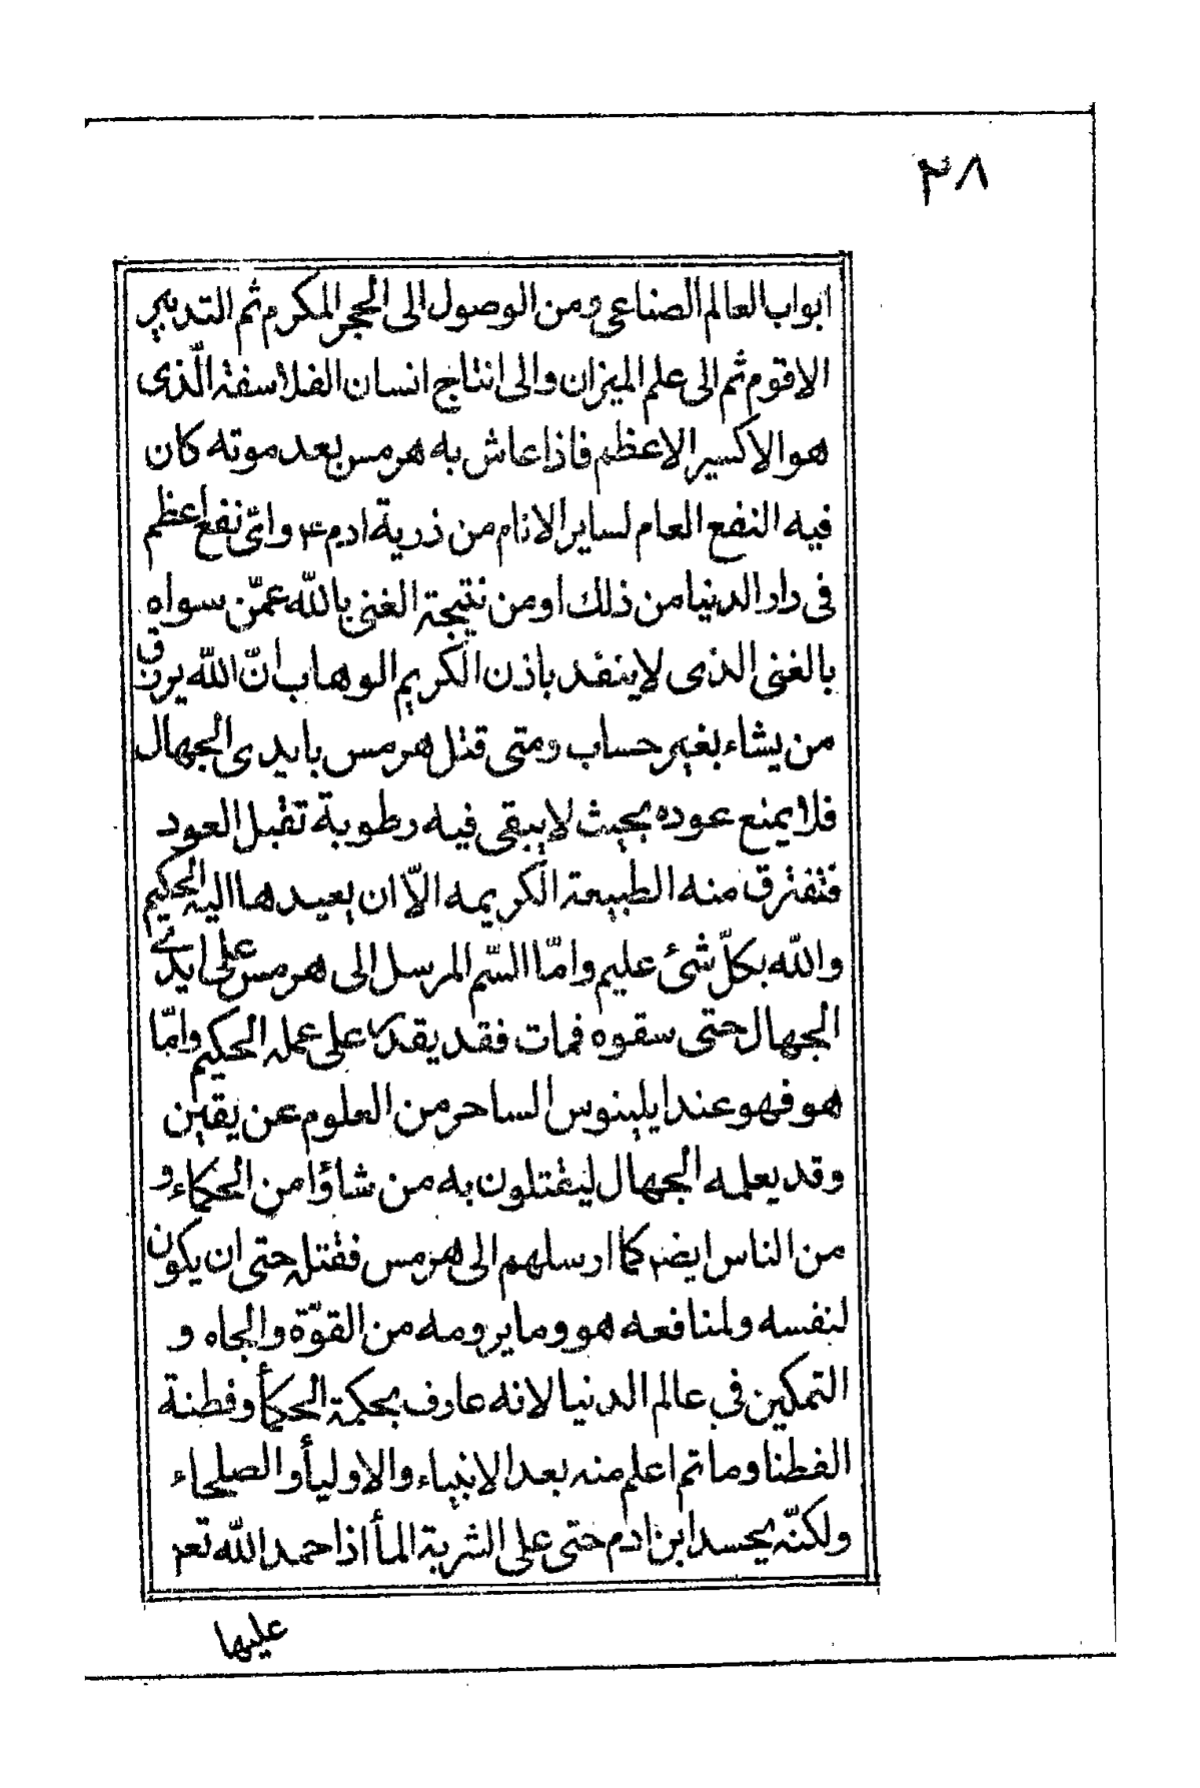 ٢٨
ابواب العالم الصناعى ومن الوصول الى الحجر المكرم ثم التدبير
الاقوم ثم الى علم الميزان والى انتاج انسان الفلاسفة الّذى
هو الاكسير الاعظم فاذا عاش به هرمس بعد موته كان
فيه النفع العام لساير الانام من ذرية ادم ع واىّ نفع اعظم
فى دار الدنيا من ذلك او من نتيجة الغنى باللّه عمّن سواه
بالغنى الذى لا ينفد باذن الكريم الوهاب انّ اللّه يرزق
من يشاء بغير حساب ومتى قتل هرمس بايدى الجهال
فلا يمنع عوده بحيث لا يبقى فيه رطوبة تقبل العود
فتفترق منه الطبيعة الكريمه الاّ ان يعيدها اليه الحكيم
واللّه بكلّ شئ عليم وامّا السّم المرسل الى هرمس على ايدى
الجهال حتى سقوه فمات فقد يقدر على عمله الحكيم وامّا
هو فهو عند ايلينوس الساحر من العلوم عن يقين
وقد يعلمه الجهال ليقتلون به من شاؤا من الحكماء و
من الناس ايضم كما ارسلهم الى هرمس فقتله حتى ان يكون
لنفسه ولمنافعه هو وما يرومه من القوّة والجاه و
التمكين فى عالم الدنيا لانه عارف بحكمة الحكمأ وفطنة
الفطنا وما تم اعلم منه بعد الانبياء والاوليأ والصلحاء
ولكنّه يحسد ابن ادم حتى على الشربة المأ اذا حمد اللّه تعم
عليها